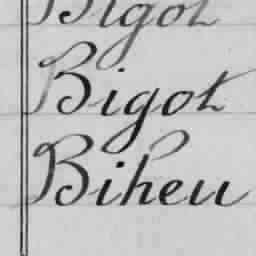 Bigot
Bigot
Biheu